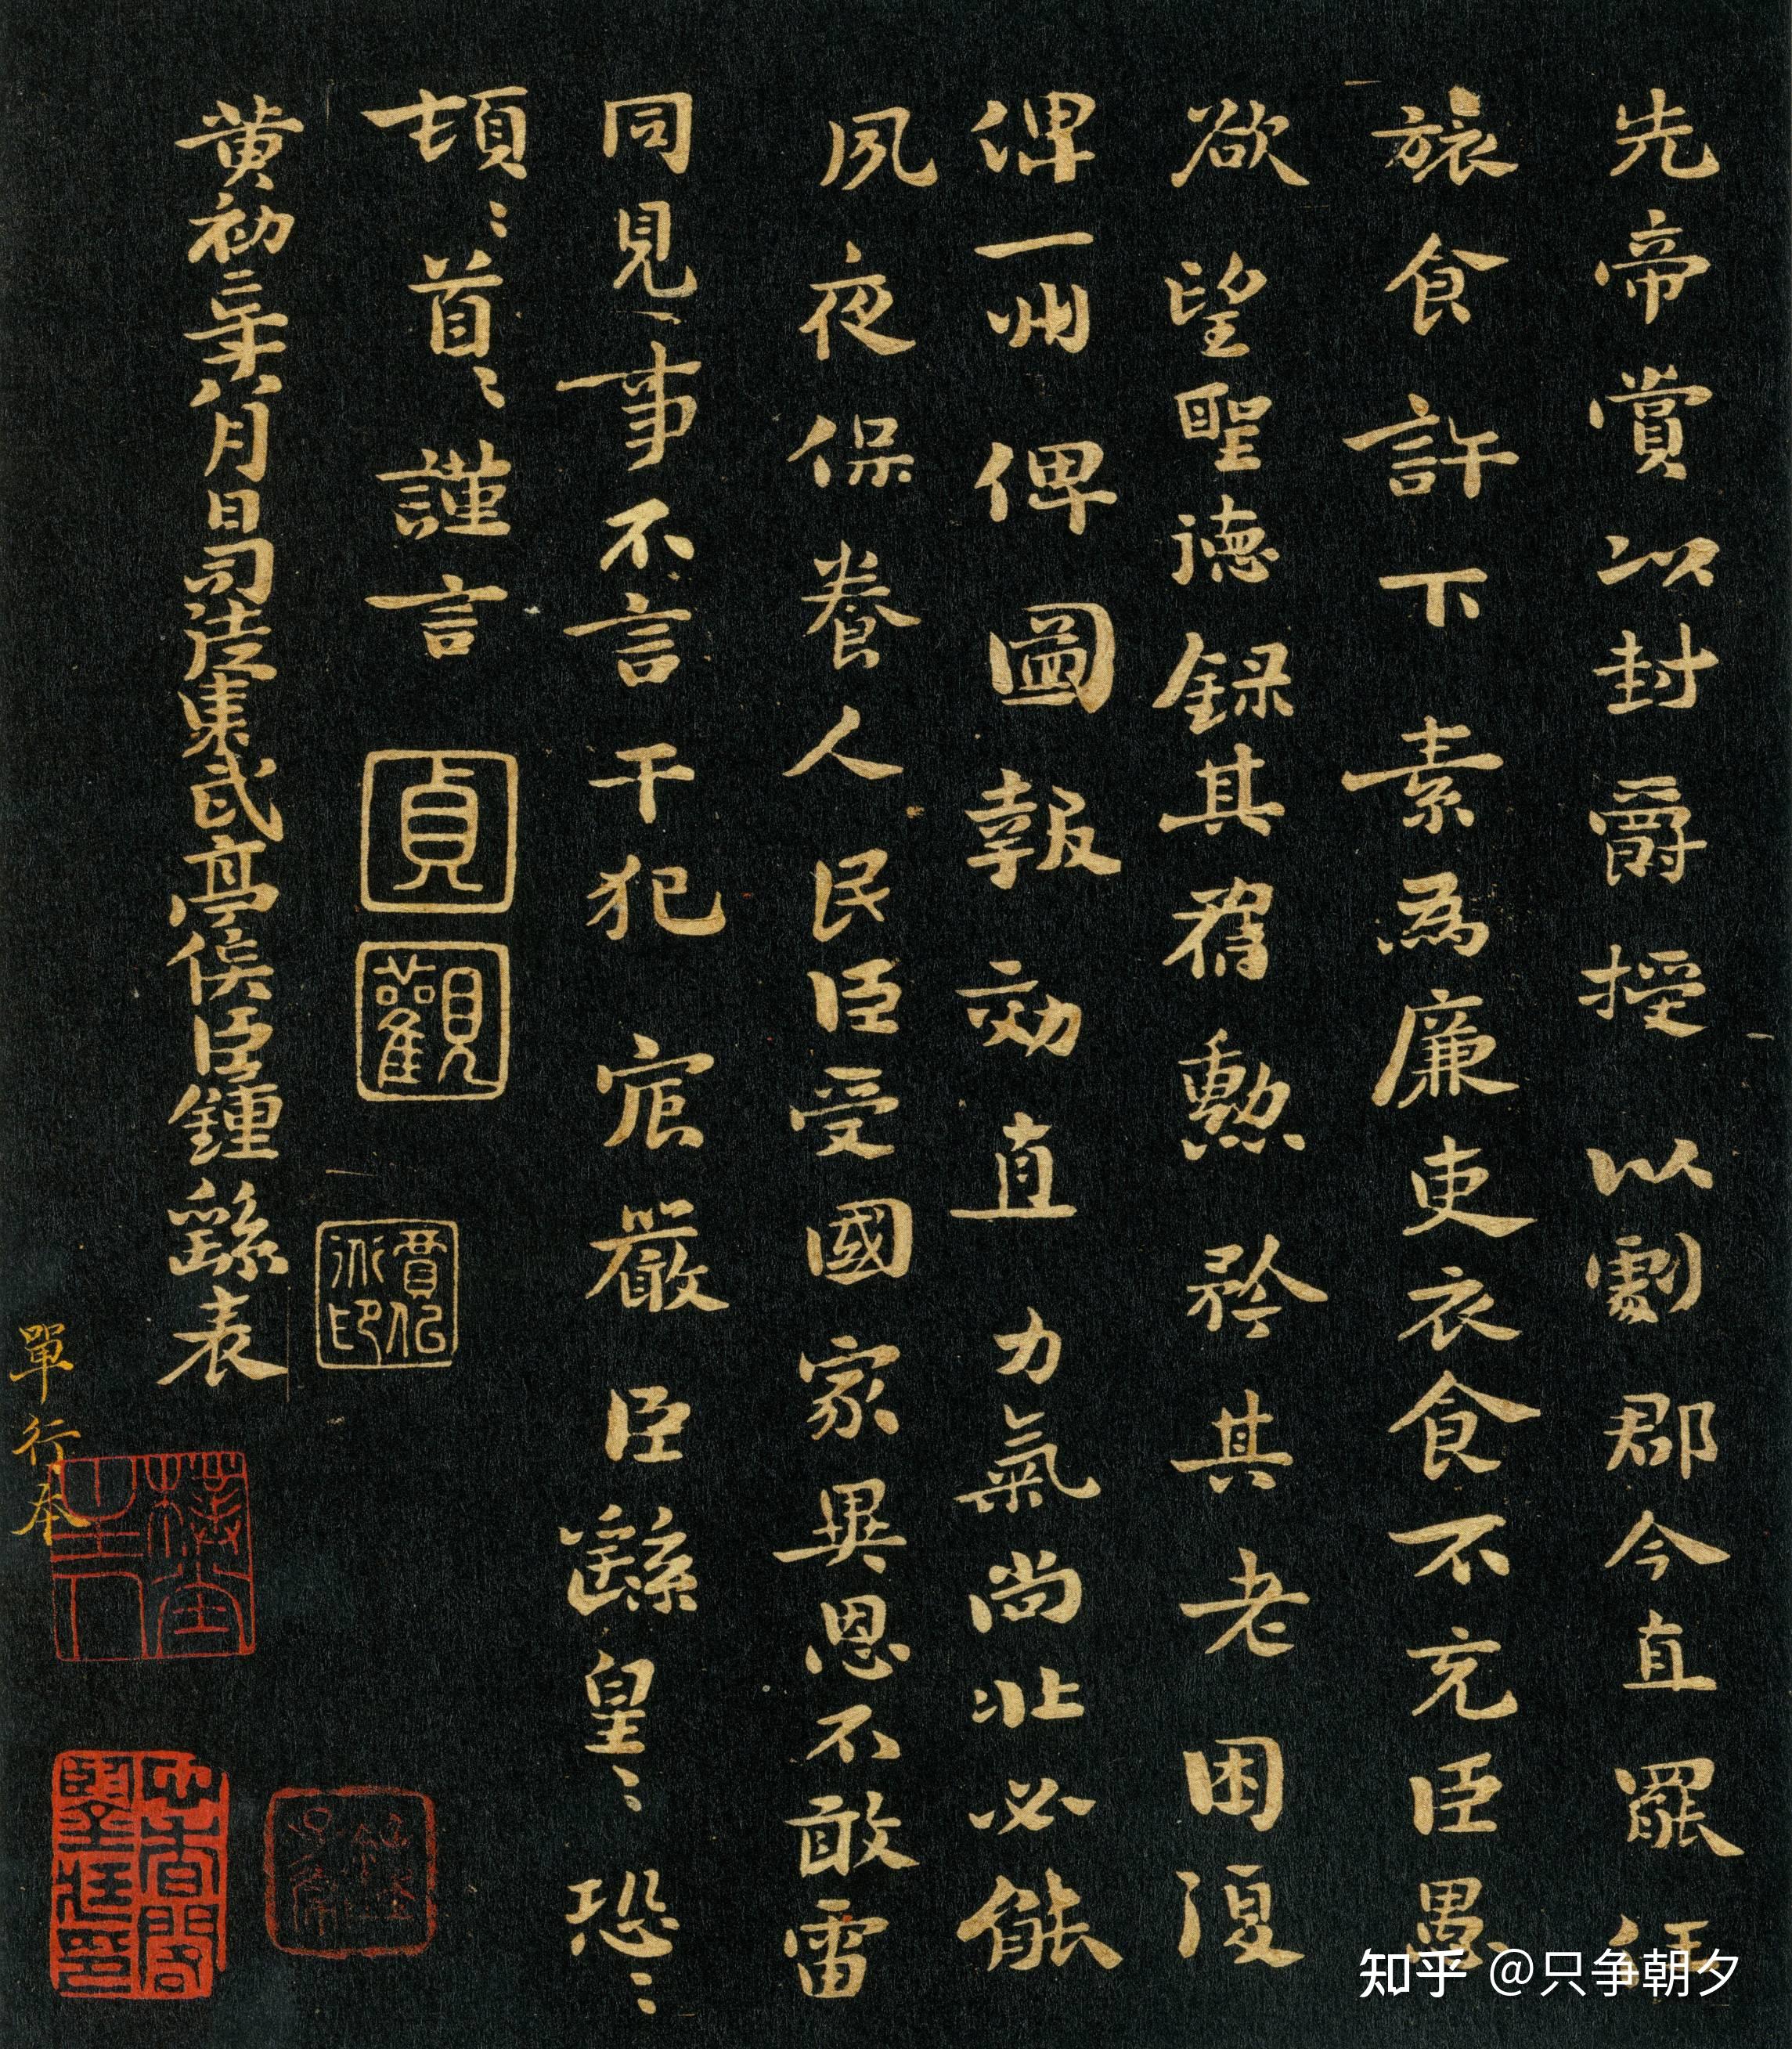 先帝賞以封爵授以劇郡今直罷任
旅食許下素為廉吏衣食不充臣愚
欲望聖德録其舊勳矜其老困復
俾一州俾圖報效直力氣尚壯必能
夙夜保養人民臣受國家異恩不敢雷
同見事不言干犯宸嚴臣繇皇〻恐〻
頓〻首〻謹言
貞
觀
黃初二年八月日司徒東武亭侯臣鍾繇表
單行奉
知乎 @只争朝夕